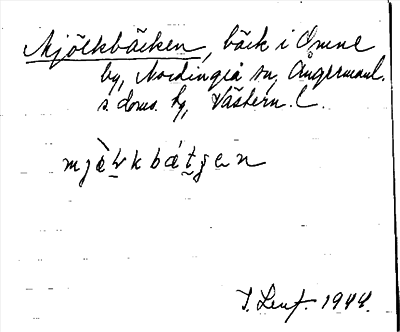 Mjölkbäcken, bäck i Omne
by, Nordingrå sn, Ångermanl.
s. doms. hg, Västern. l.
mjàl̠kbát̠gen
1944.